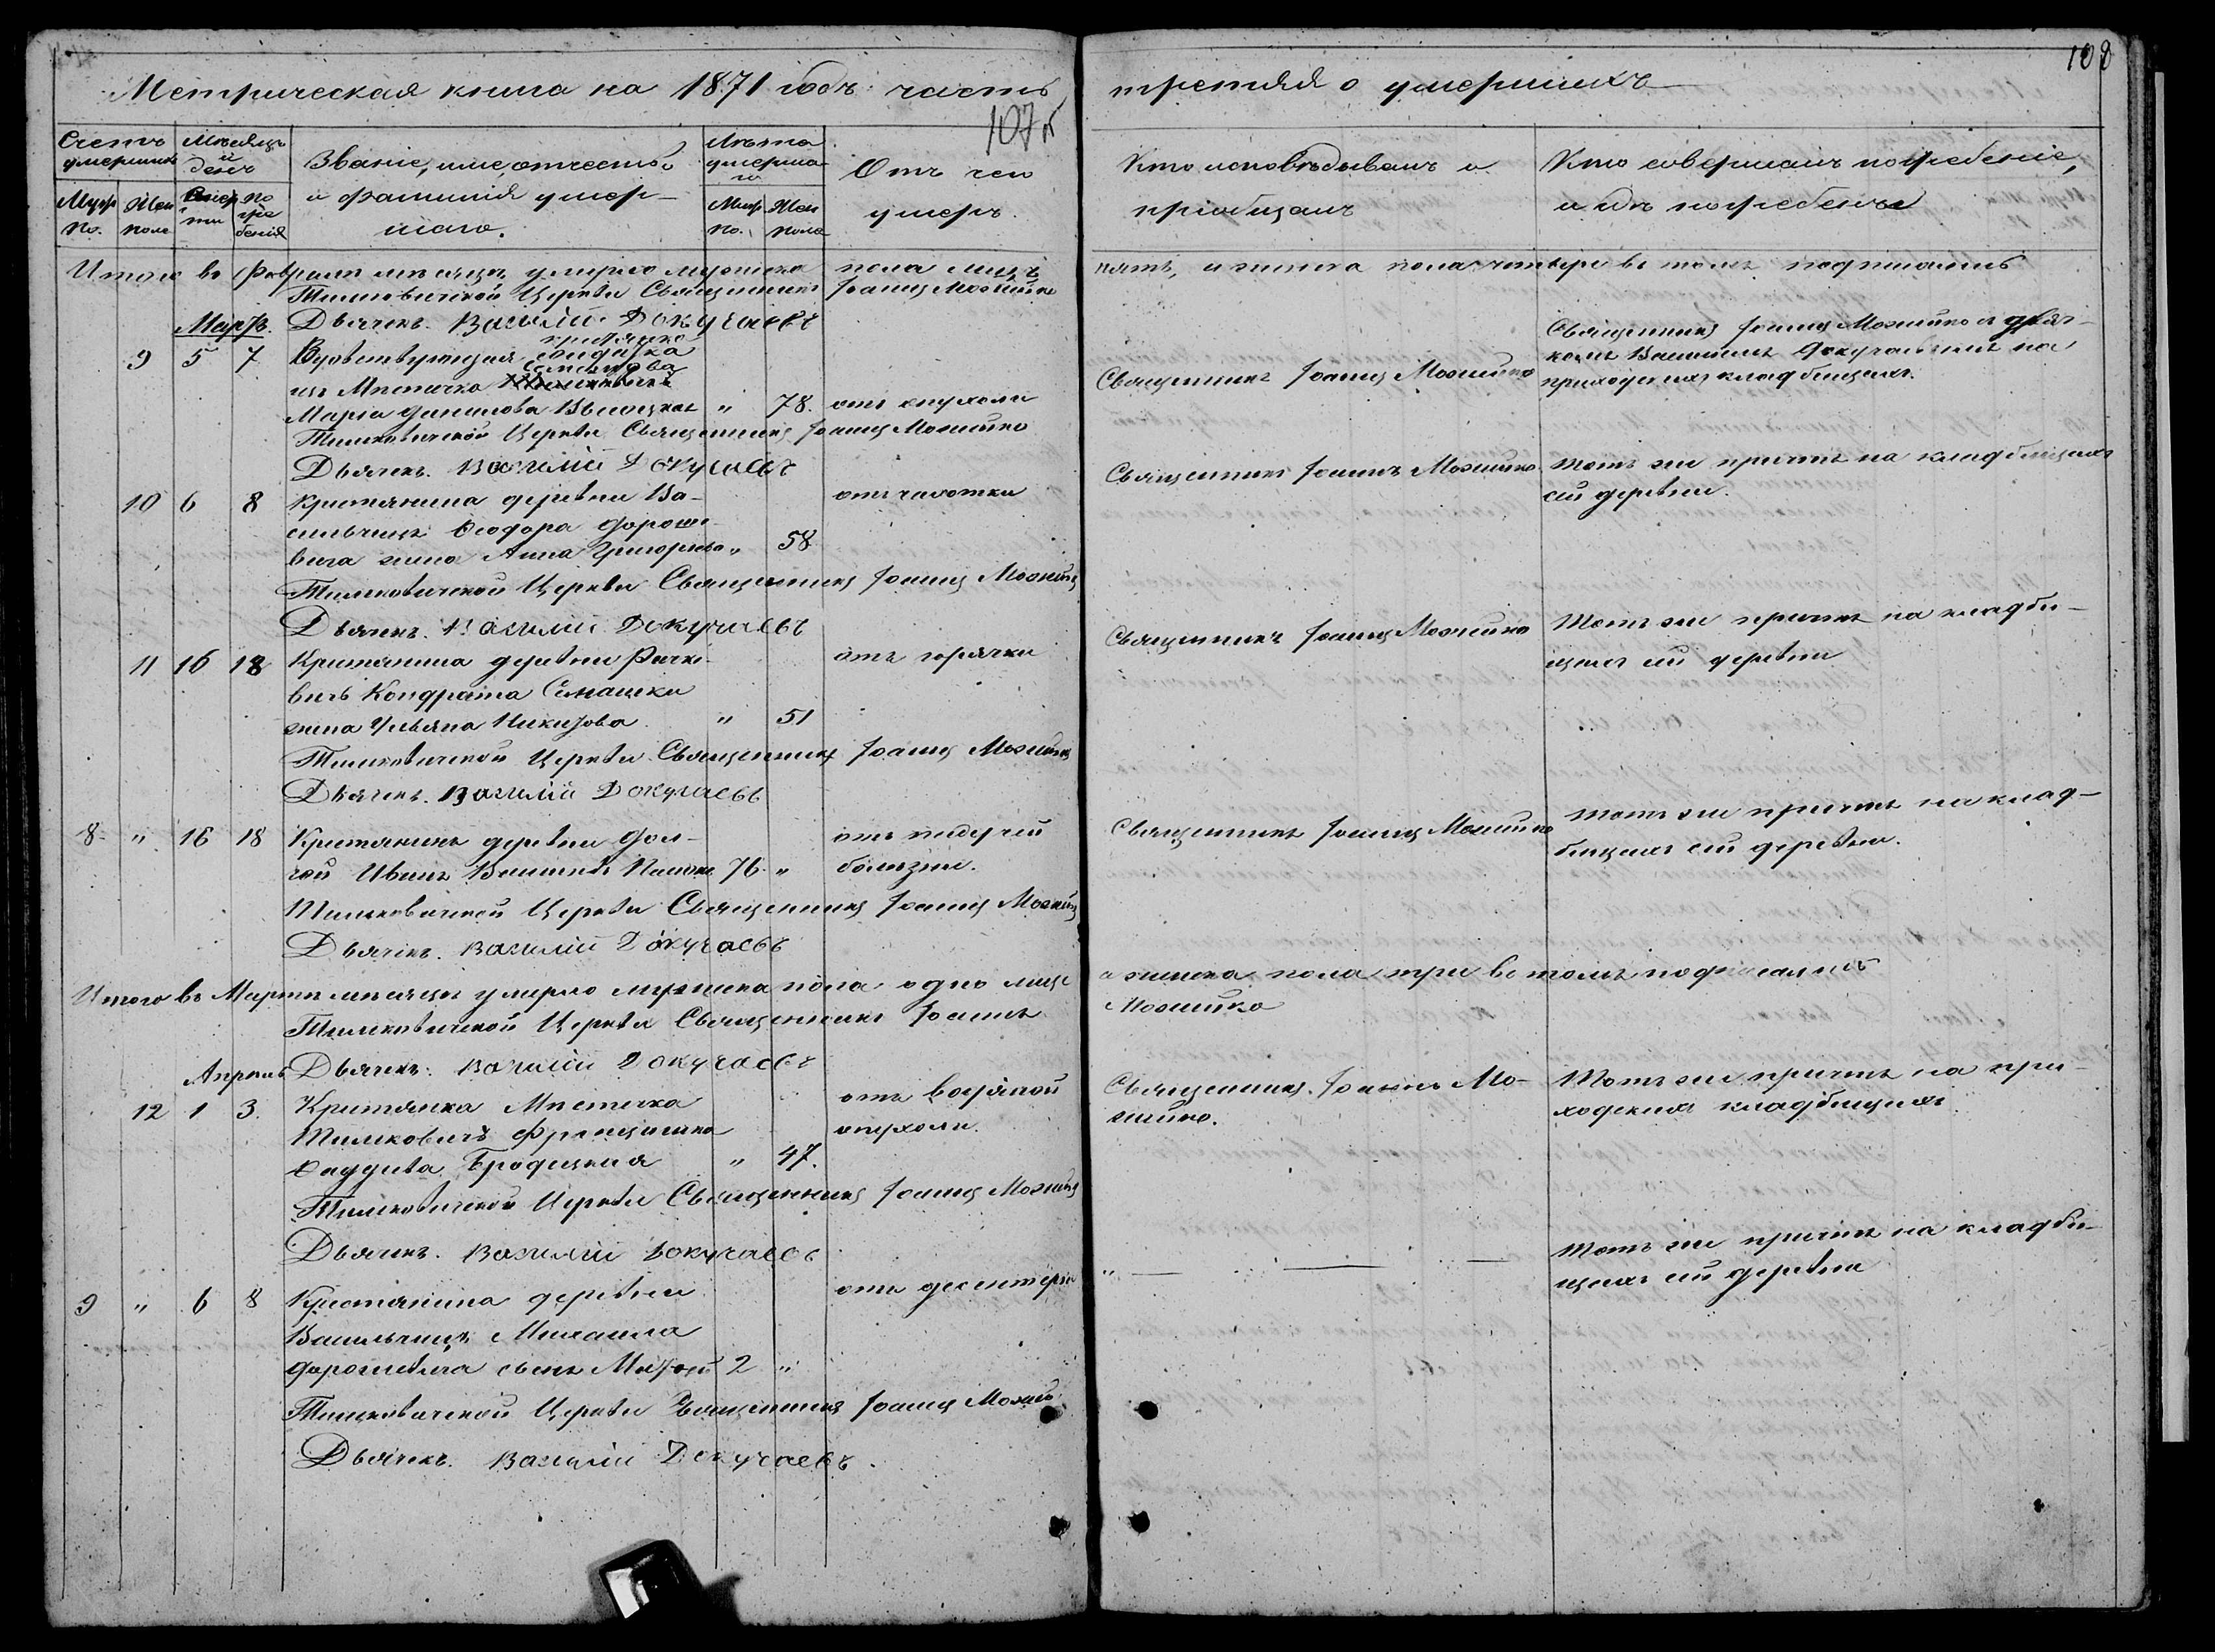 Метрическая книга на 1871 годъ часть третяя о умершихъ
108
107
Счетъ умершихъ
Мѣсяцъ и день
Званіе, имя, отчество и фамилія умершаго.
Лѣта умершаго
Отъ чего умеръ.
Кто исповѣдывалъ и пріобщалъ
Кто совершалъ погребеніе, и гдѣ погребены
Муж. по.
Жен. пола
Смерти
Погребенія
Муж. по.
Жен. пола
Итого въ Февралѣ мѣсяцѣ умерло мужеска пола лицъ пять, и женска пола четыре въ томъ подписались
Тимковичской Церкви Священникъ Іоаннъ Можейко
Мартъ. Дьячекъ. Василій Докучаевъ
9 5 7
изъ Мѣстечка
Марія Данилова " 78. отъ опухоли
Священникъ Іоаннъ Можейко
Священникъ Іоаннъ Можейко и дьяч-
комъ Василіемъ Докучаевымъ на
приходскихъ кладбищахъ.
Тимковичской Церкви Священникъ Іоаннъ Можейко
Дьячекъ. Василій Докучаевъ
10 6 8 Крестянина деревни Ва-
сильчицъ Ѳеодора Дороше-
вича жена Анна Григорьева " 58
отъ чахотки
Священникъ Іоаннъ Можейко
Тотъ же причтъ на кладбищахъ
сей деревни.
Тимковичской Церкви Священникъ Іоаннъ Можейко
Дьячекъ. Василій Докучаевъ
11 16 18 Крестянина деревни Рачко-
вичъ Кондрата Семашки
жена Ульяна Никитова " 51
отъ горячки
Священникъ Іоаннъ Можейко
Тотъ же причтъ на кладби-
щахъ сей деревни
Тимковичской Церкви Священникъ Іоаннъ Можейко
Дьячекъ. Василій Докучаевъ
8 " 16 18 Крестянинъ деревни Дол-
гой Иванъ 76 "
отъ падучей
болѣзни.
Священникъ Іоаннъ Можейко
Тотъ же причтъ на клад-
бищахъ сей деревни.
Тимковичской Церкви Священникъ Іоаннъ Можейко
Дьячекъ. Василій Докучаевъ
Итого въ Мартѣ мѣсяцѣ умерло мужеска пола одно лице а женска пола три въ томъ подписались
Тимковичской Церкви Священникъ Іоаннъ Можейко
Апрель Дьячекъ. Василій Докучаевъ
12 1 3. Крестянка Мѣстечка
Тимковичъ Францишка
Ѳаддѣева Бродецкая " 47.
отъ водяной
опухоли.
Священникъ Іоаннъ Мо-
жейко.
Тотъ же причтъ на при-
ходскихъ кладбищахъ
Тимковичской Церкви Священникъ Іоаннъ Можейко
Дьячекъ. Василій Докучаевъ
9 " 6 8 Крестянина деревни
Васильчицъ Михаила
Дорошевича сынъ 2 "
отъ десентеріи
"
Тотъ же причтъ на кладби-
щахъ сей деревни
Тимковичской Церкви Священникъ Іоаннъ Можейко
Дьячекъ. Василій Докучаевъ.